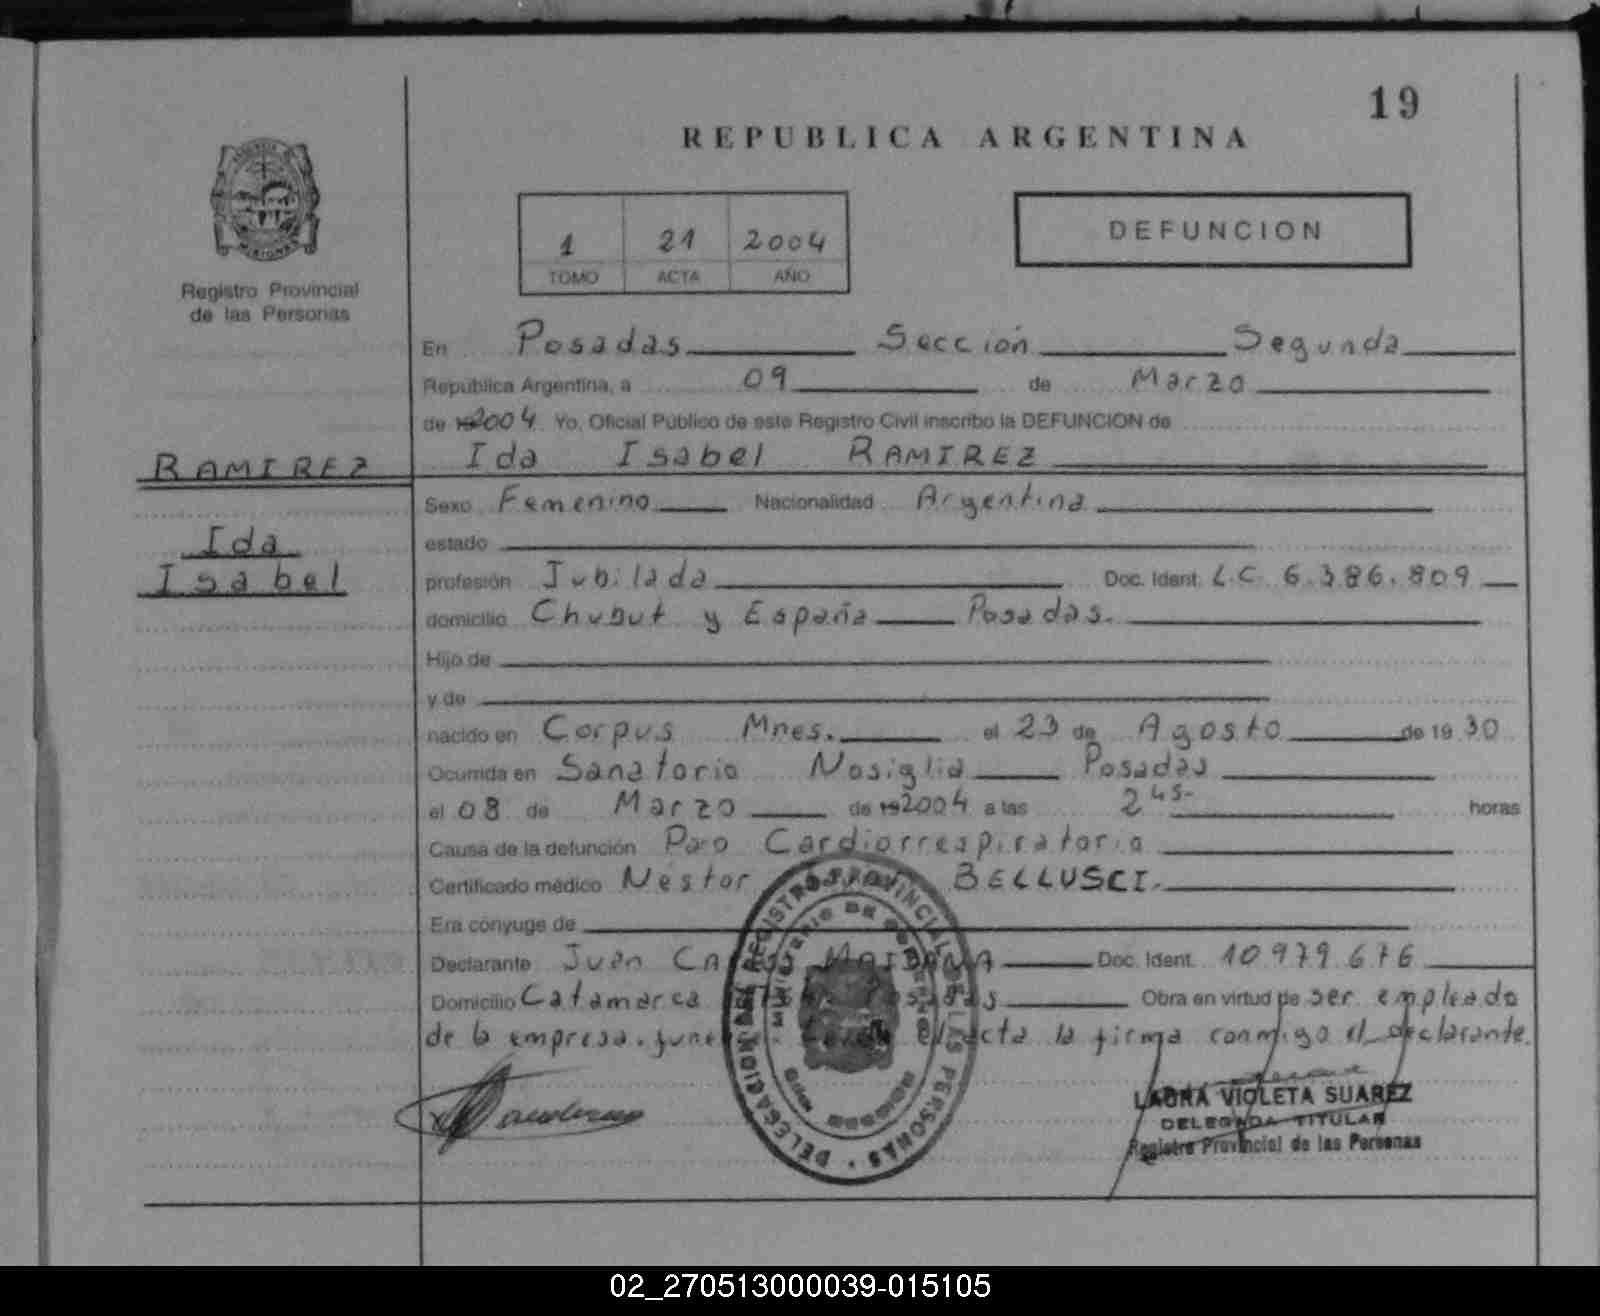 19
REPUBLICA ARGENTINA
1 21 2004
TOMO ACTA AÑO
DEFUNCION
Registro Provincial
de las Personas
En Posadas Sección Segunda
República Argentina, a 09 de Marzo
de 2004 Yo, Oficial Público de este Registro Civil inscribo la DEFUNCION de
Ida Isabel RAMIREZ
RAMIREZ
Ida
Isabel
Sexo Femenino Nacionalidad Argentina
estado
profesión Jubilada Doc. Ident. L.C. 6.386.809
domicilio Chubut y España Posadas.
Hijo de
y de
nacido en Corpus Mnes. el 23 de Agosto de 1930
Ocurrida en Sanatorio Nosiglia Posadas
el 08 de Marzo de 2004 a las 2 45 horas
Causa de la defunción Paro Cardiorrespiratorio
Certificado médico Néstor BELLUSCI.
Era cónyuge de
Declarante Juan Doc. Ident. 10.979.676
Domicilio Catamarca Posadas Obra en virtud de ser empleado
de la empresa el acta la firma conmigo el declarante.
DELEGACION DEL REGISTRO PROVINCIAL DE LAS PERSONAS
MINISTERIO DE GOBIERNO
LAURA VIOLETA SUAREZ
DELEGADA TITULAR
Registro Provincial de las Personas
02_270513000039-015105